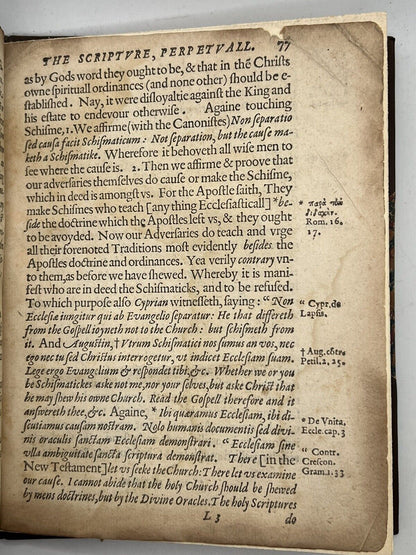 THE SCRIPTVRE, PERPETVALL. 77
as by Gods word they ought to be, & that in thē Christs
owne spirituall ordinances (and none other) should be e-
stablished. Nay, it were disloyaltie against the King and
his estate to endevour otherwise. Againe touching
Schisme, 1. We affirme (with the Canonistes) Non separatio
sed causa facit Schismaticum: Not separation, but the cause ma-
keth a Schismatike. Wherefore it behoveth all wise men to
see where the cause is. 2. Then we affirme & proove that
our adversaries themselves do cause or make the Schisme,
which in deed is amongst vs. For the Apostle saith, They
make Schismes who teach [any thing Ecclesiasticall] *be-
side the doctrine which the Apostles left vs, & they ought
to be avoyded. Now our Adversaries do teach and vrge
all their forenoted Traditions most evidently besides the
Apostles doctrine and ordinances. Yea verily contrary vn-
to them, as before we have shewed. Whereby it is mani-
fest who are in deed the Schismaticks, and to be refused.
To which purpose also Cyprian witnesseth, saying: “Non
Ecclesiæ iungitur qui ab Evangelio separatur: He that differeth
from the Gospell ioyneth not to the Church: but schismeth from
it. And Augustin, † Vtrum Schismatici nos sumus an vos, nec
ego nec tu sed Christus interrogetur, vt indicet Ecclesiam suam.
Lege ergo Evangelium & respondet tibi, &c. Whether we or you
be Schismatickes aske not me, nor your selves, but aske Christ that
he may shew his owne Church. Read the Gospell therefore and it
answereth thee, &c. Againe, * Ibi quæramus Ecclesiam, ibi dis-
cutiamus causam nostram. Nolo humanis documentis sed divi-
nis oraculis sanctam Ecclesiam demonstrari. “Ecclesiam sine
vlla ambiguitate sancta scriptura demonstrat. There [in the
New Testament] let vs seeke the Church: There let vs examine
our cause. I cannot abide that the holy Church should be shewed
by mens doctrines, but by the Divine Oracles. The holy Scriptures
L 3 do
* παρὰ τὴν
διδαχήν.
Rom. 16.
17.
“ Cypr. de
Lapsis.
† Aug. cōtr.
Petil. 2, 25.
* De Vnita.
Eccle. cap. 3
“ Contr.
Crescon.
Gram. 1. 33